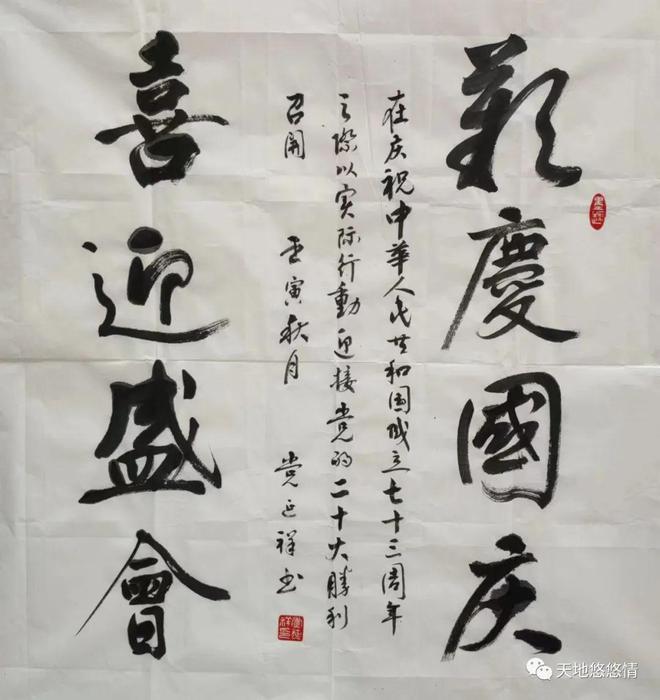 歡慶國庆
在庆祝中華人民共和国成立七十三周年
之際以实际行動迎接党的二十大勝利
召開 壬寅秋月 党延祥书
喜迎盛會
天地悠悠情